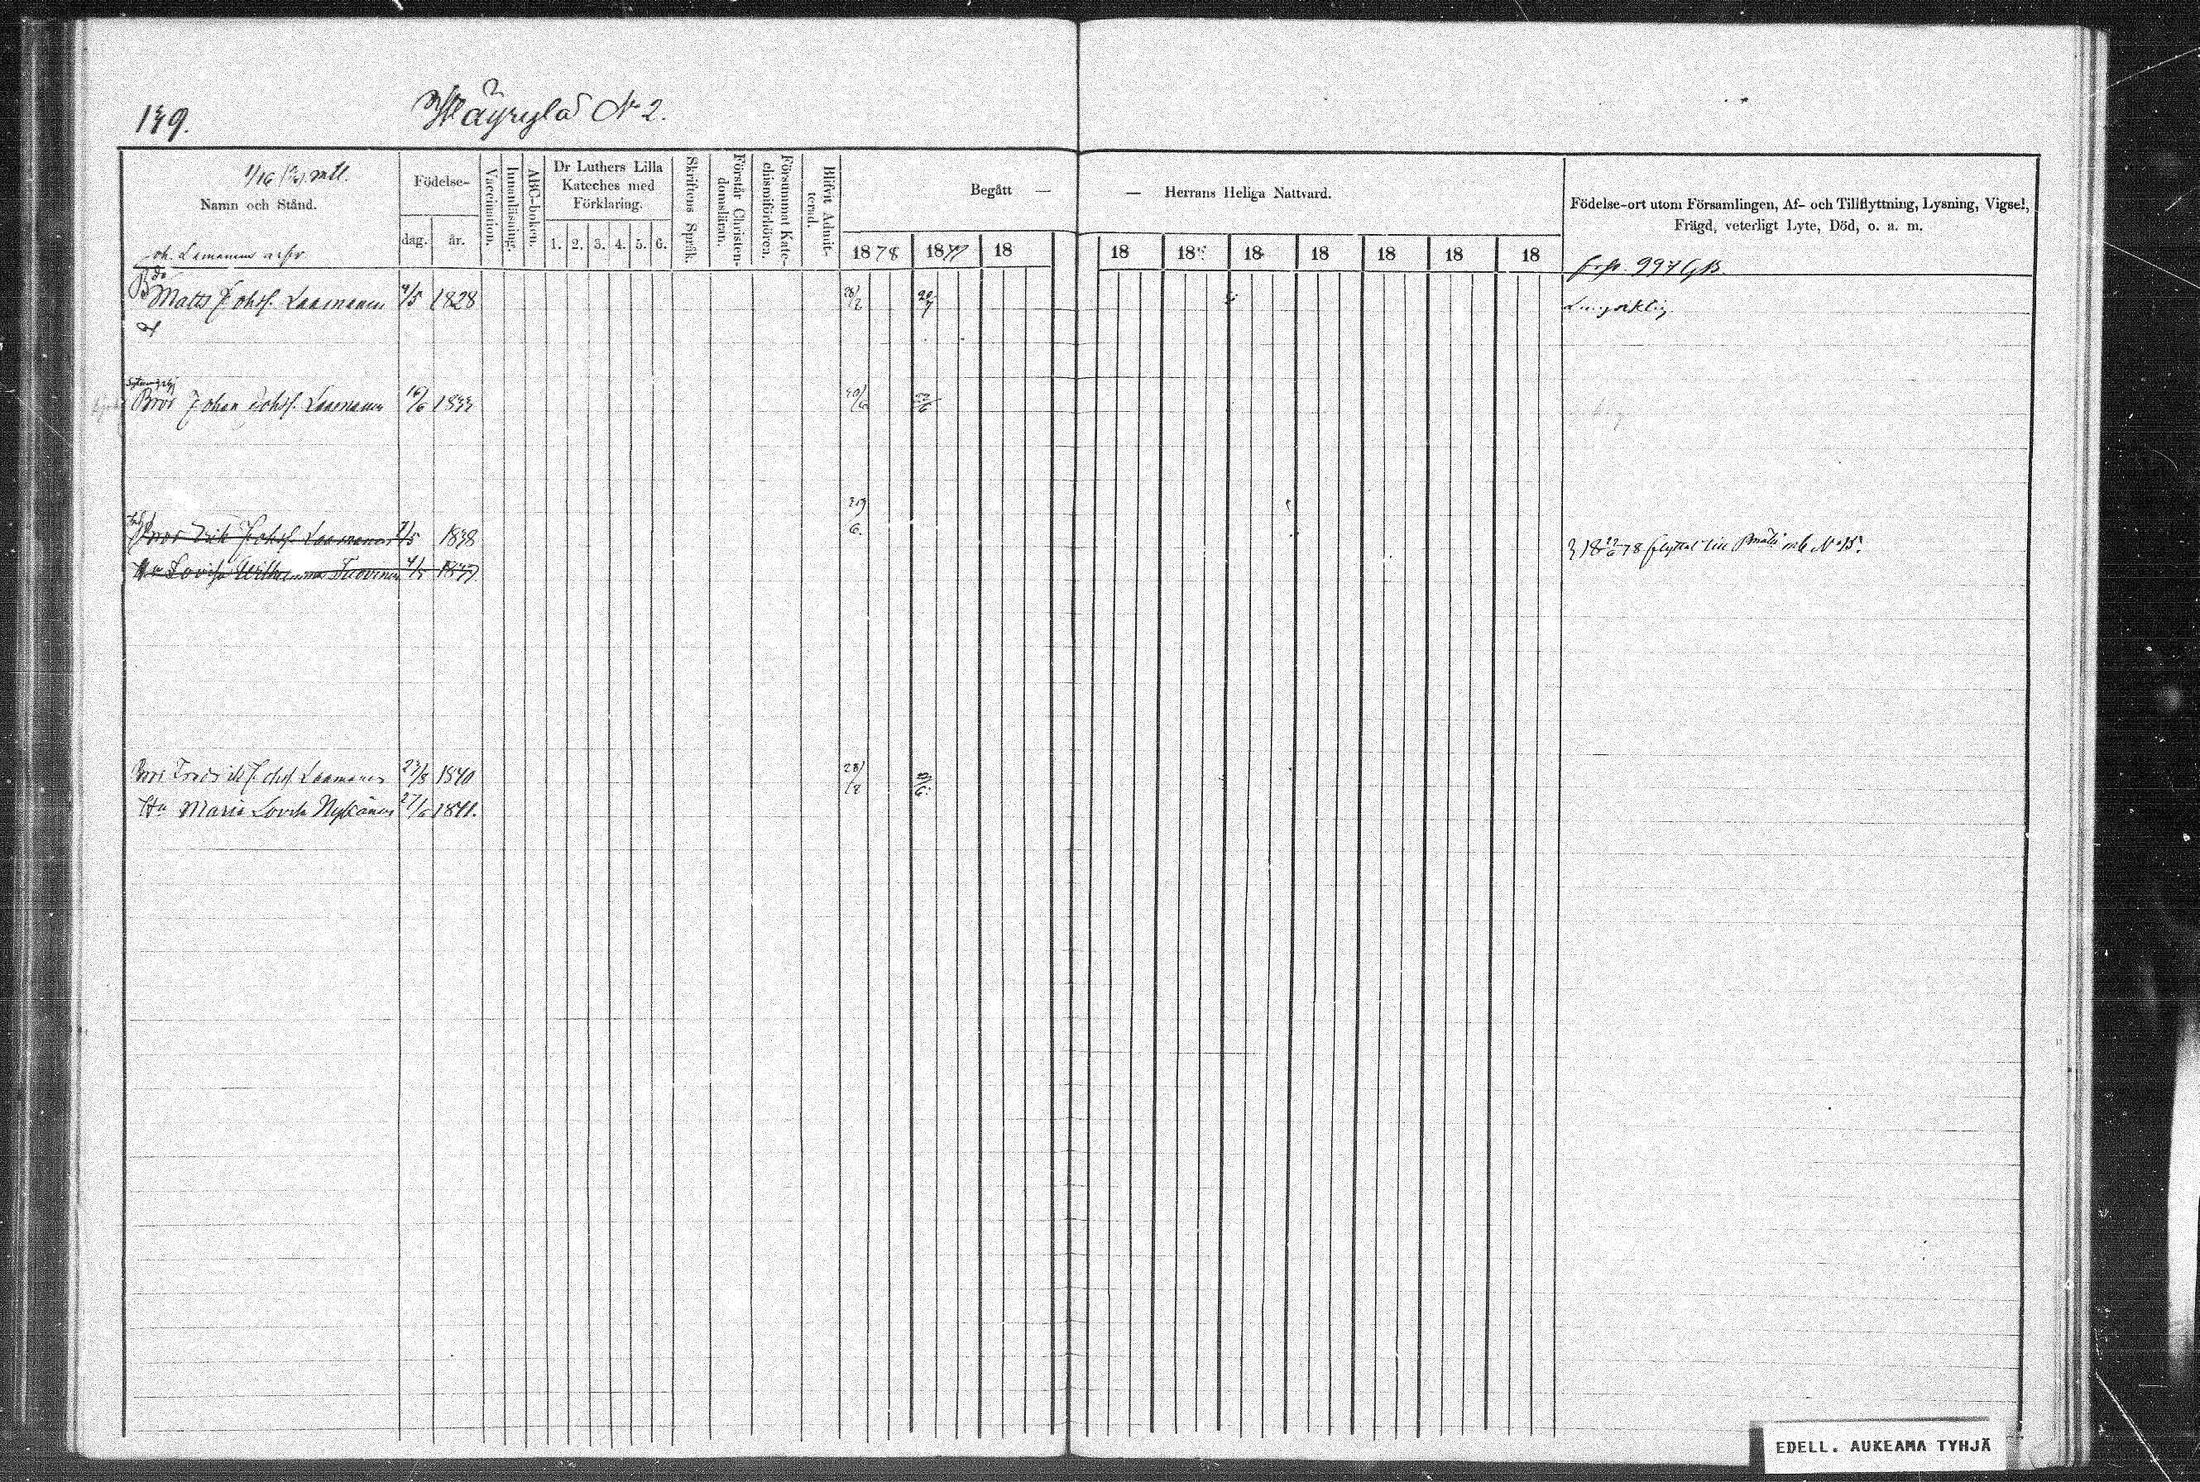 139. Wäyrylä No 2.
1/16 mtl.
Namn och Stånd.
Födelse-
dag. år.
Vaccination.
Innanläsning.
ABC-boken.
Dr Luthers Lilla
Kateches med
Förklaring.
1. 2. 3. 4. 5. 6.
Skriftens Språk.
Förstår Christen-
domsläran.
Försummat Kate-
chismiförhören.
Blifvit Admit-
terad.
Begått — — Herrans Heliga Nattvard.
1878 1879 18 18 18 18 18 18 18 18
Födelse-ort utom Församlingen, Af- och Tillflyttning, Lysning, Vigsel,
Frägd, veterligt Lyte, Död, o. a. m.
Joh. Lamanens arfv.
997
Matts Johsf. Laamanen 4/5 1828 28/2 20/7
Bror Johan Johsf. Laamanen 16/6 1833 30/6 22/6
Bror Erik Johsf. Laamanen 7/5 1838 30/6
18 22/6 78 flyttat till No 15.
Hu Lovisa Wilhelmina Tuovinen 4/5
Bror Fredrik Johsf. Laamanen 23/8 1840 28/2
Hu Maria Lovisa Nykänen 27/6 1841.
EDELL. AUKEAMA TYHJÄ